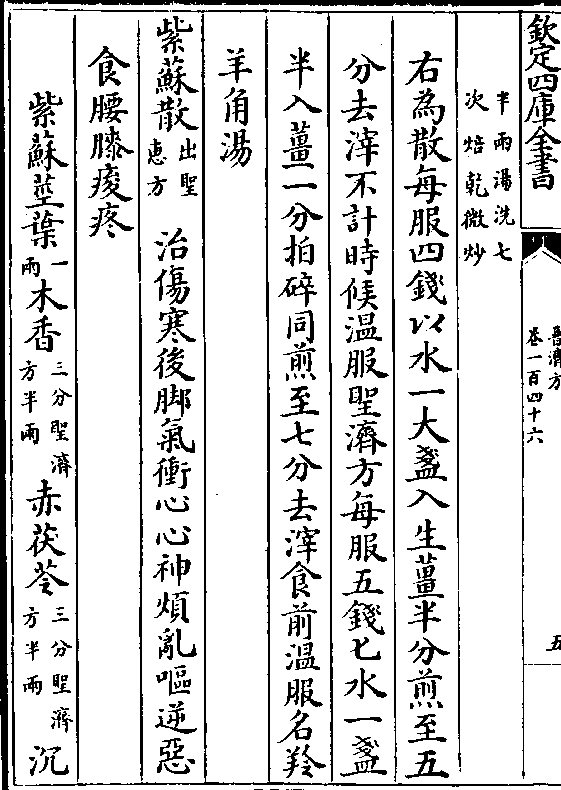 欽定四庫全書
普濟方
卷一百四十六
五
半兩湯洗七
次焙乾微炒
右為散每服四錢以水一大盞入生薑半分煎至五
分去滓不計時候温服聖濟方每服五錢匕水一盞
半入薑一分拍碎同煎至七分去滓食前温服名羚
羊角湯
紫蘇散出聖惠方 治傷寒後脚氣衝心心神煩亂嘔逆惡
食腰膝痠疼
紫蘇莖葉一兩木香三分聖濟方半兩赤茯苓三分聖濟方半兩沉